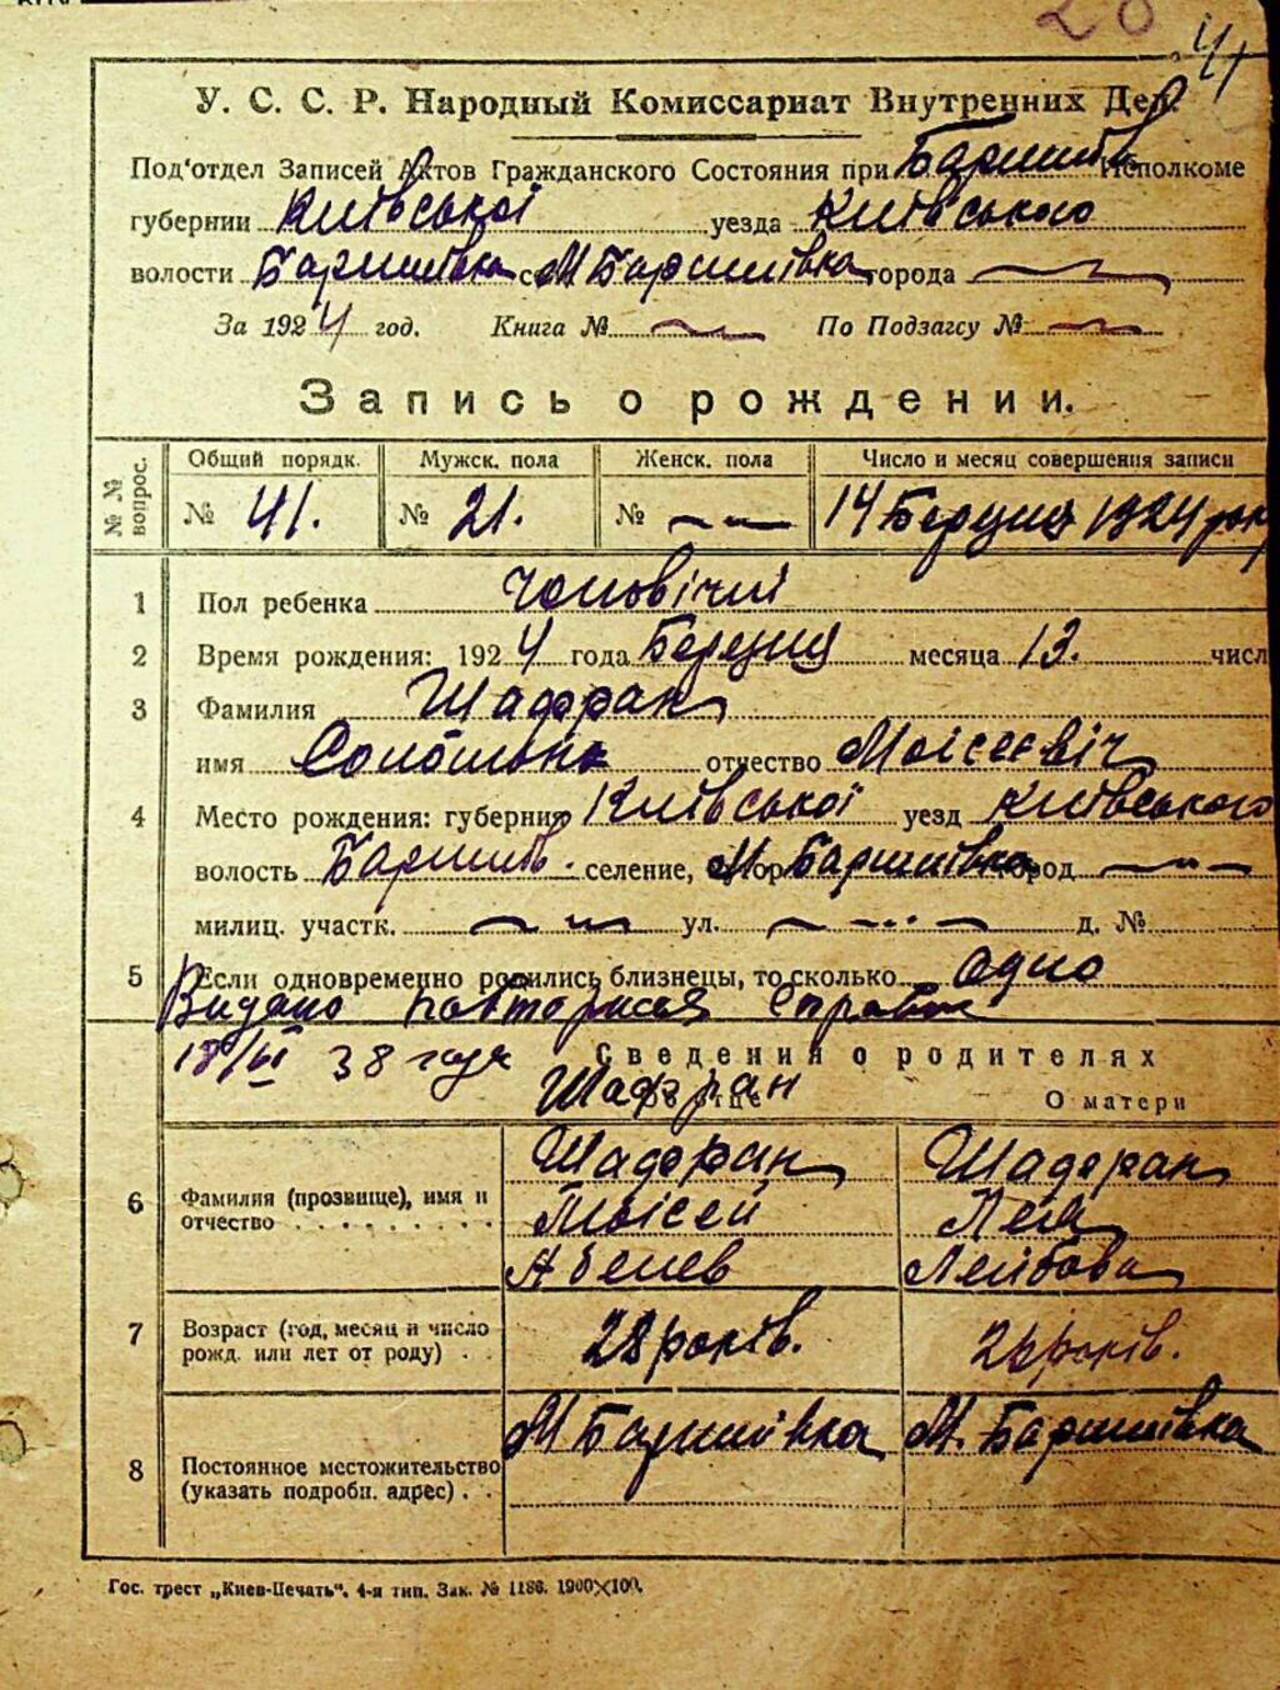 28
41
У. С. С. Р. Народный Комиссариат Внутренних Дел.
Под'отдел Записей Актов Гражданского Состояния при Баришів Исполкоме
губернии Київської уезда Київського
волости Баришівка с М Баришівка города
За 1924 год. Книга № По Подзагсу №
Запись о рождении.
№ № вопрос. Общий порядк. Мужск. пола Женск. пола Число и месяц совершения записи
№ 41. № 21. № 14 Березня 1924 рок
1 Пол ребенка Чоловічий
2 Время рождения: 1924 года Березня месяца 13. числ
3 Фамилия Шафран
имя отчество Моісеєвіч
4 Место рождения: губерния Київської уезд Київського
волость Баришів. селение, М. Баришівка город
милиц. участк. ул. д. №
5 Если одновременно родились близнецы, то сколько Одно
Видано повторная справка
18/VI 38 года Сведения о родителях
Шафран
Об отце О матери
6 Фамилия (прозвище), имя и отчество Шафран Шафран
Мойсей Лея
Абелев Лейбова
7 Возраст (год, месяц и число рожд. или лет от роду) 28 років. 26 років.
8 Постоянное местожительство (указать подробн. адрес) М Баришівка М. Баришівка
Гос. трест „Киев-Печать“. 4-я тип. Зак. № 1186. 1900×100.